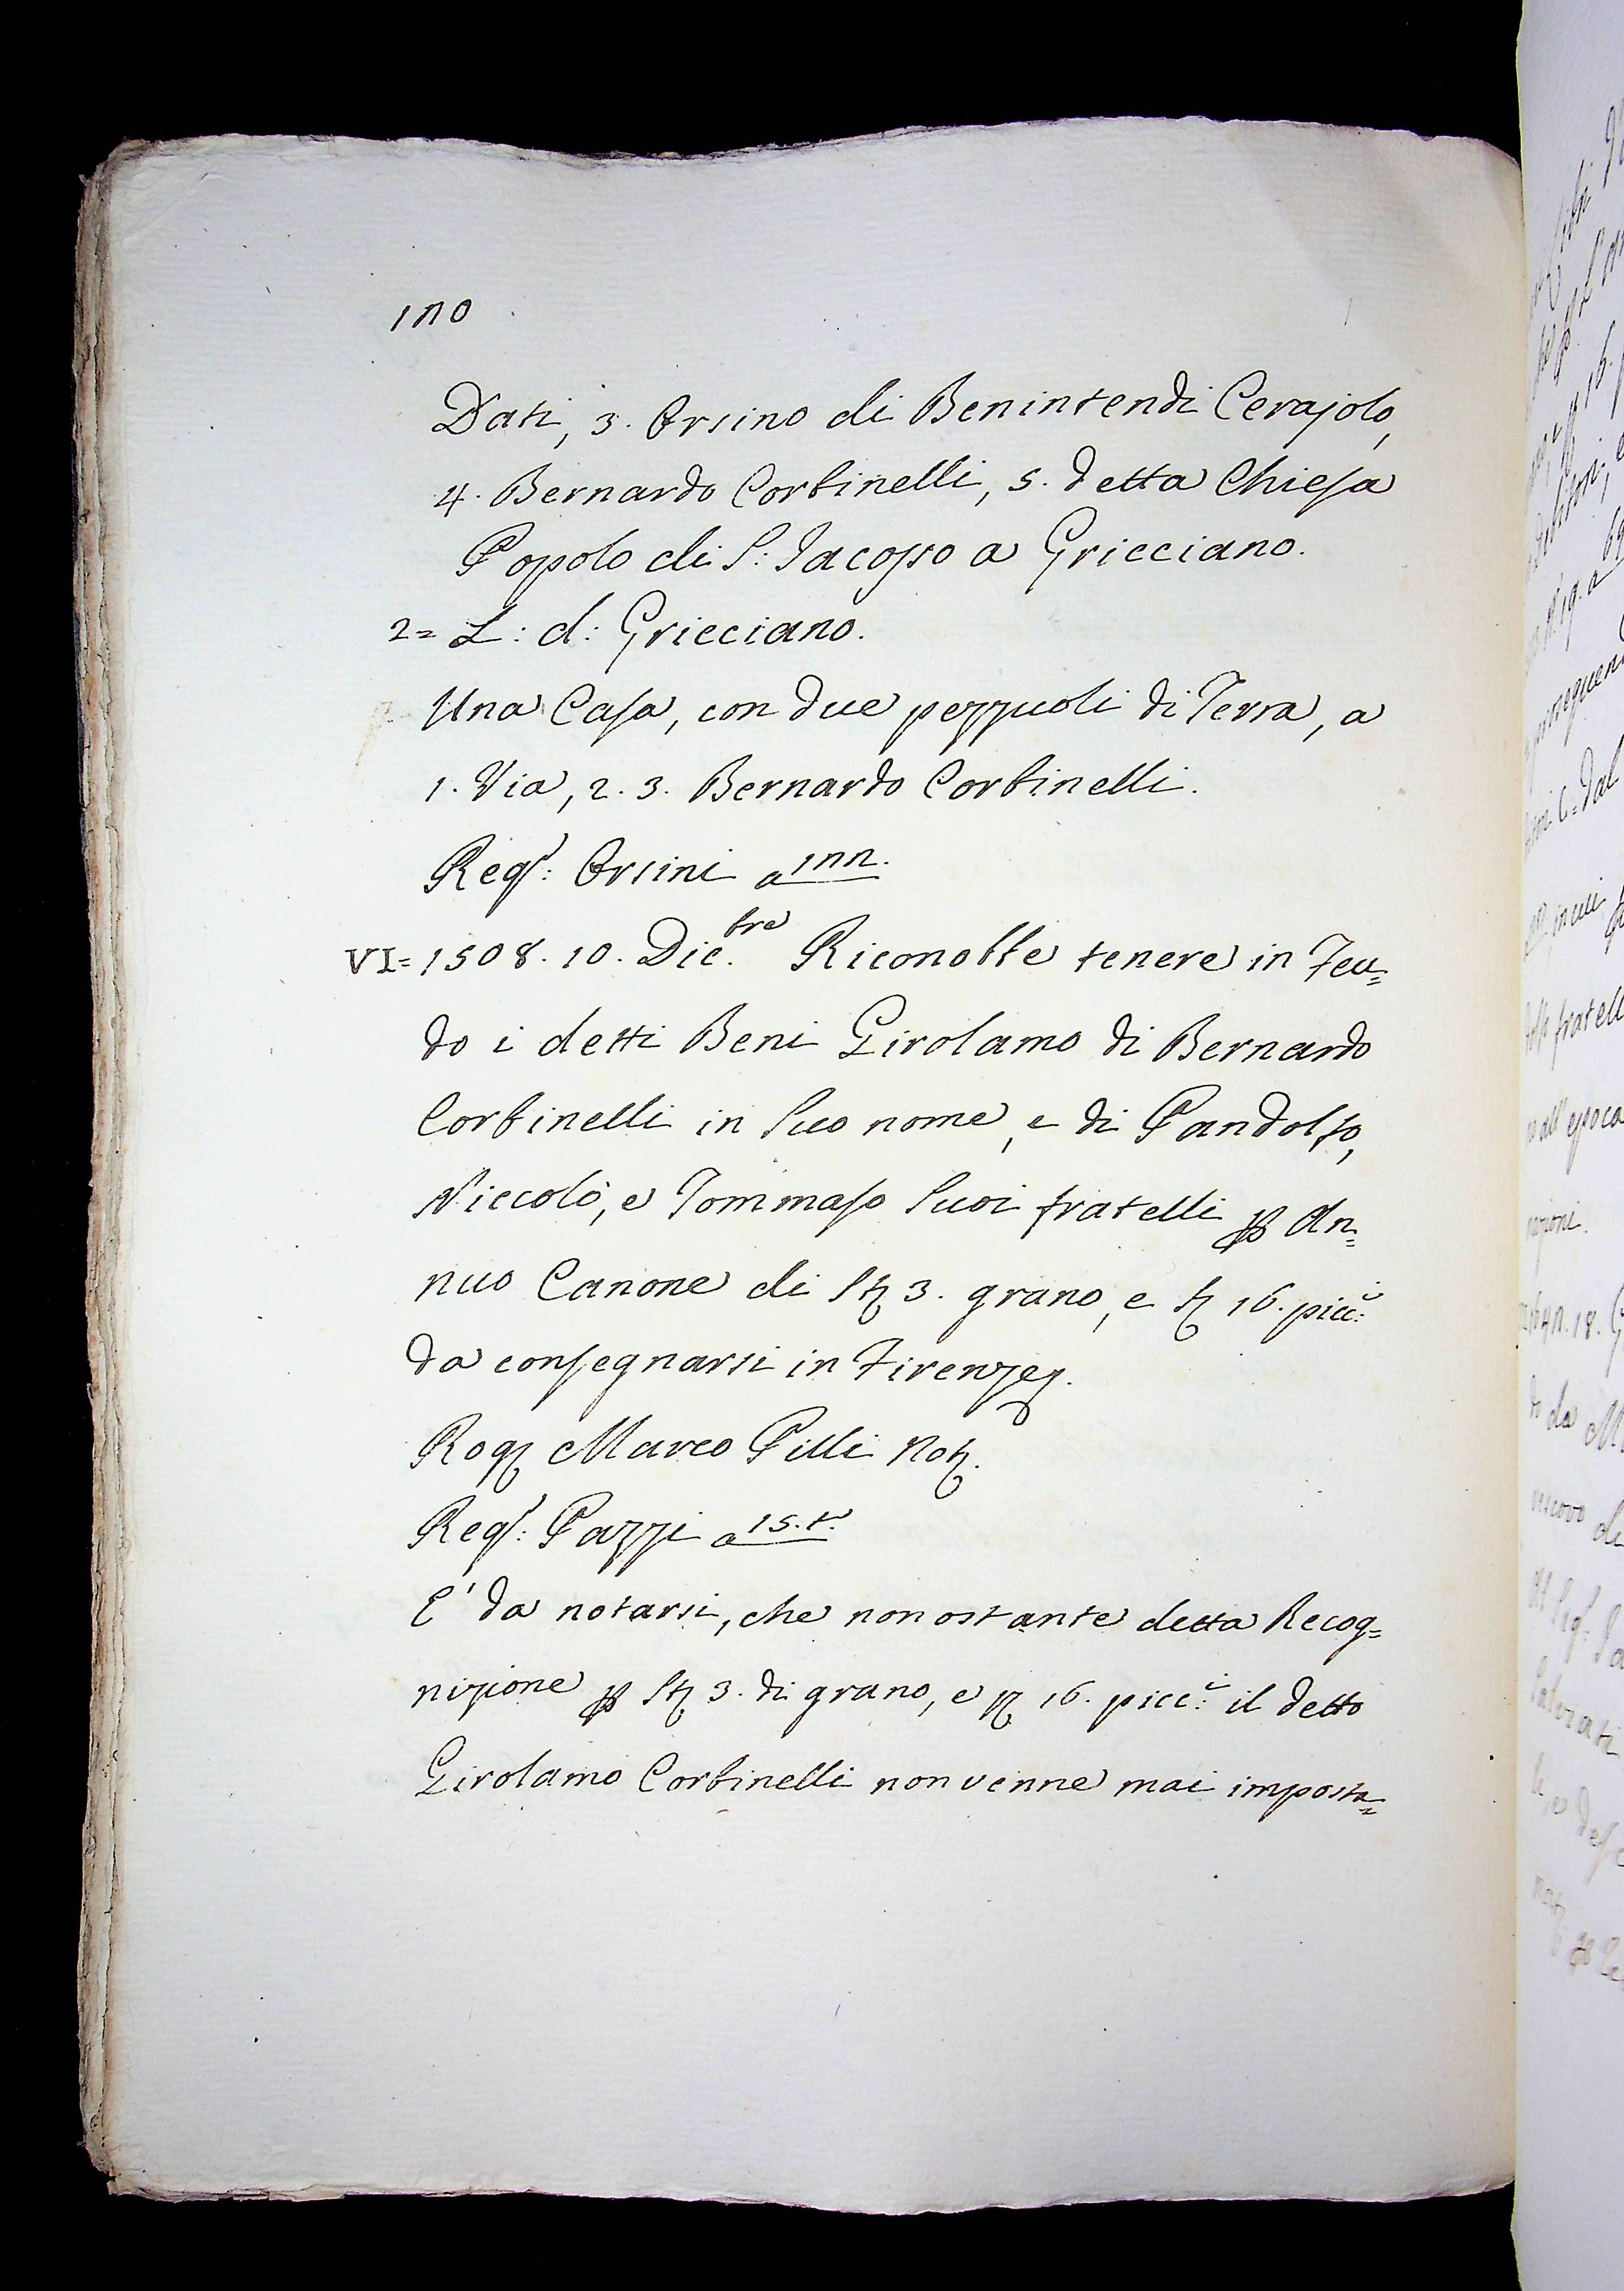 170
Dati, 3. Orsino di Benintendi Cerajolo,
4. Bernardo Corbinelli, 5. detta Chiesa
Popolo di S: Jacopo a Gricciano.
2= L: d: Gricciano.
Una Casa, con due pezzuoli di Terra, a
1. Via, 2. 3. Bernardo Corbinelli.
Regs: Orsini a 177.
VI= 1508. 10. Dic.bre Riconobbe tenere in Feu=
do i detti Beni Girolamo di Bernardo
Corbinelli in Suo nome, e di Pandolfo,
Niccolò, e Tommaso Suoi fratelli p An=
nuo Canone di St 3. grano, e 16. picc:i
da consegnarsi in Firenze.
Rog Marco Pilli Not.
Regs: Pazzi a 15.t.
E' da notarsi, che nonostante detta Recog=
nizione p St 3. di grano, e 16. picc:i il detto
Girolamo Corbinelli non venne mai imposta=